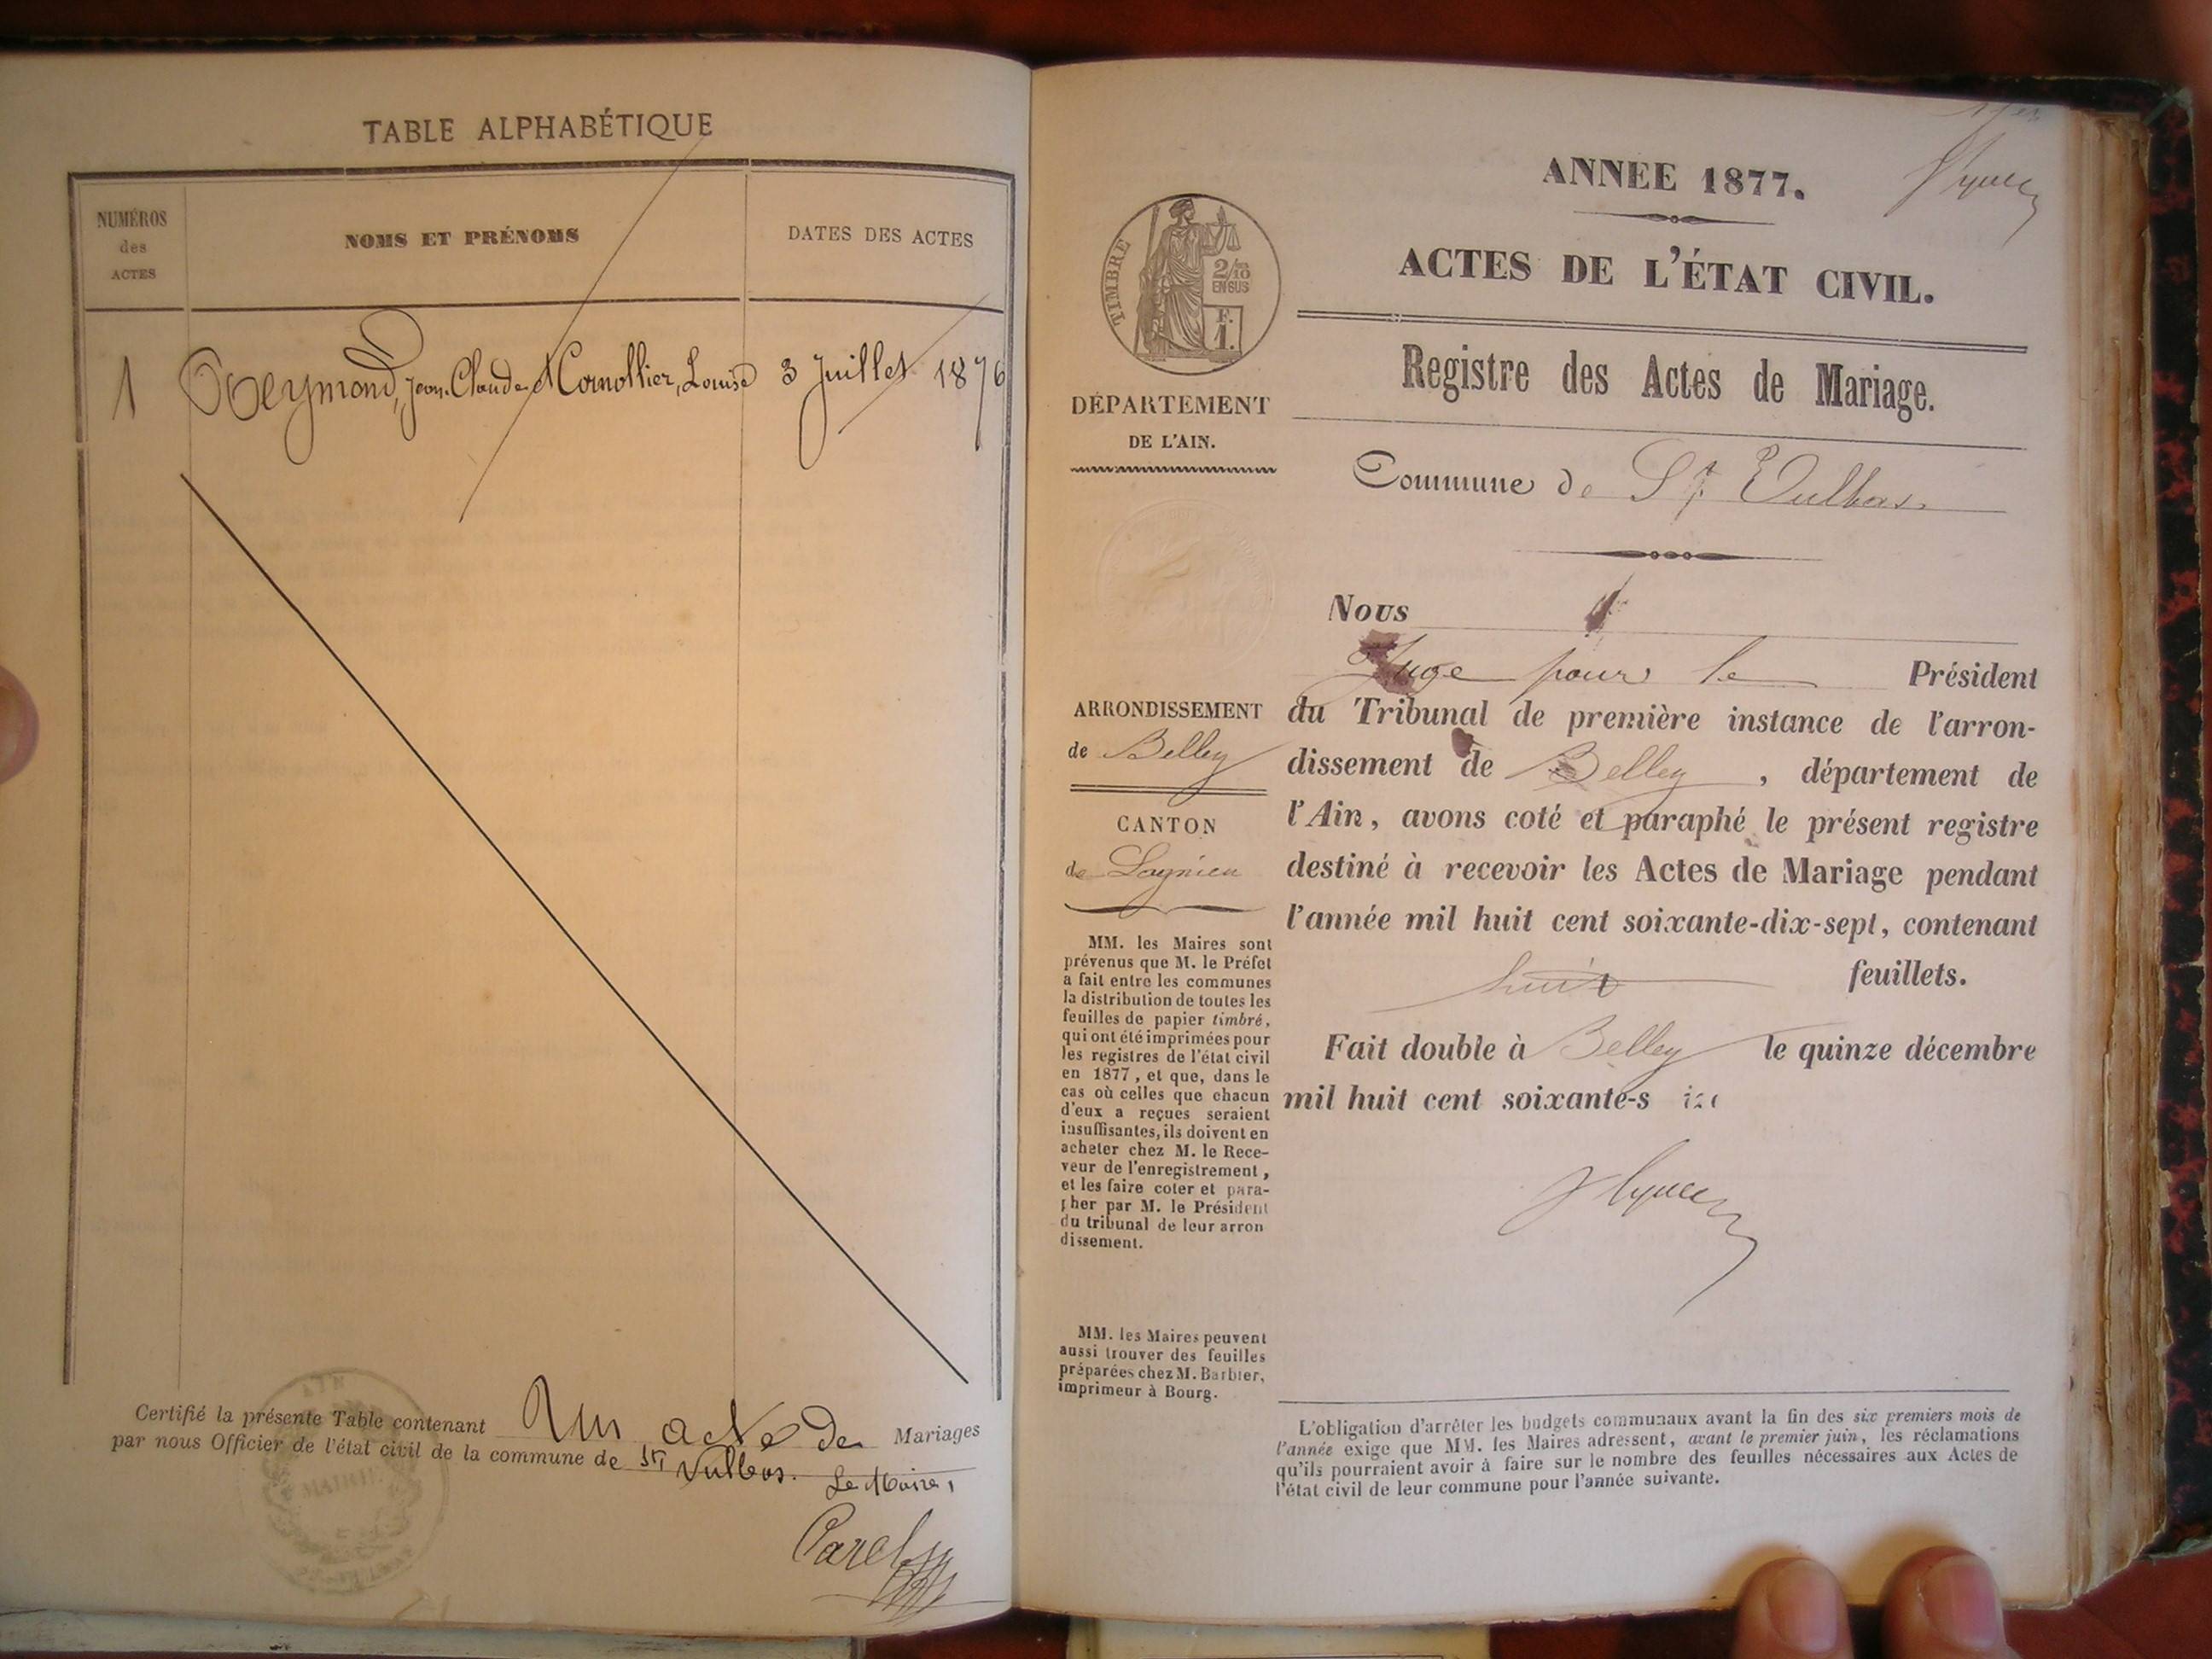 TABLE ALPHABÉTIQUE
NUMÉROS
des
ACTES
NOMS ET PRÉNOMS
DATES DES ACTES
1 Reymond, Jean-Claude et Cornollier, Louise 3 Juillet 1876
Certifié la présente Table contenant Un acte de Mariages
par nous Officier de l'état civil de la commune de St Vulbas.
Le Maire,
AIN
MAIRIE
ANNEE 1877.
ACTES DE L'ÉTAT CIVIL.
Registre des Actes de Mariage.
Commune de St Vulbas
TIMBRE
2/10
EN SUS
F.
1.
DÉPARTEMENT
DE L'AIN.
ARRONDISSEMENT
de Belley
CANTON
de Lagnieu
MM. les Maires sont
prévenus que M. le Préfet
a fait entre les communes
la distribution de toutes les
feuilles de papier timbré,
qui ont été imprimées pour
les registres de l'état civil
en 1877, et que, dans le
cas où celles que chacun
d'eux a reçues seraient
insuffisantes, ils doivent en
acheter chez M. le Rece-
veur de l'enregistrement,
et les faire coter et para-
pher par M. le Président
du tribunal de leur arron
dissement.
MM. les Maires peuvent
aussi trouver des feuilles
préparées chez M. Barbier,
imprimeur à Bourg.
Nous
Juge pour le Président
du Tribunal de première instance de l'arron-
dissement de Belley, département de
l'Ain, avons coté et paraphé le présent registre
destiné à recevoir les Actes de Mariage pendant
l'année mil huit cent soixante-dix-sept, contenant
huit feuillets.
Fait double à Belley le quinze décembre
mil huit cent soixante-s
L'obligation d'arrêter les budgets communaux avant la fin des six premiers mois de
l'année exige que MM. les Maires adressent, avant le premier juin, les réclamations
qu'ils pourraient avoir à faire sur le nombre des feuilles nécessaires aux Actes de
l'état civil de leur commune pour l'année suivante.